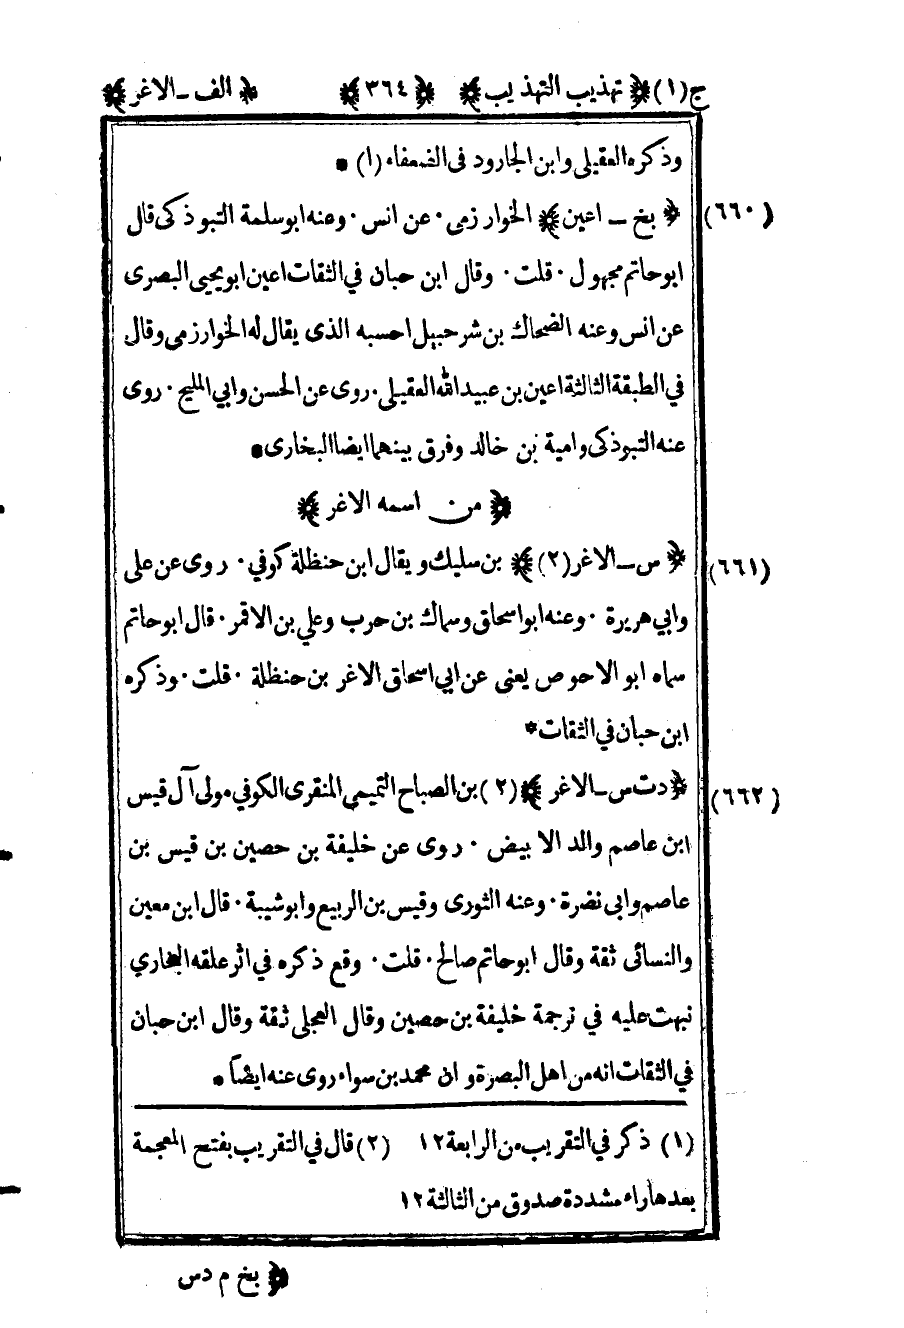 ج(١) ﴿ تهذيب التهذيب ﴾ ﴿ ٣٦٤ ﴾ ﴿ الف ـ الاغر ﴾
وذكره العقيلى وابن الجارود فى الضعفاء (١) *
(٦٦٠) ﴿ بخ ـ اعين ﴾ الخوارزمى · عن انس · وعنه ابوسلمة التبوذكى قال
ابوحاتم مجهول · قلت · وقال ابن حبان في الثقات اعين ابويحيى البصرى
عن انس وعنه الضحاك بن شرحبيل احسبه الذى يقال له الخوارزمى وقال
في الطبقة الثالثة اعين بن عبيدالله العقيلى · روى عن الحسن وابي المليح · روى
عنه التبوذكى وامية بن خالد وفرق بينهما ايضا البخارى *
﴿ من اسمه الاغر ﴾
(٦٦١) ﴿ س ـ الاغر (٢) ﴾ بن سليك ويقال ابن حنظلة كوفي · روى عن على
وابي هريرة · وعنه ابواسحاق وسماك بن حرب وعلي بن الاقمر · قال ابوحاتم
سماه ابو الاحوص يعنى عن ابي اسحاق الاغر بن حنظلة · قلت · وذكره
ابن حبان في الثقات *
(٦٦٢) ﴿ دت س ـ الاغر ﴾ (٢) بن الصباح التميمي المنقرى الكوفي مولى آل قيس
ابن عاصم والد الابيض · روى عن خليفة بن حصين بن قيس بن
عاصم وابى نضرة · وعنه الثورى وقيس بن الربيع وابوشيبة · قال ابن معين
والنسائى ثقة وقال ابوحاتم صالح · قلت · وقع ذكره في اثر علقه البخاري
نبهت عليه في ترجمة خليفة بن حصين وقال العجلى ثقة وقال ابن حبان
في الثقات انه من اهل البصرة وان محمد بن سواء روى عنه ايضاً *
(١) ذكر في التقريب من الرابعة ١٢ (٢) قال في التقريب بفتح المعجمة
بعدها راء مشددة صدوق من الثالثة ١٢
﴿ بخ م دس